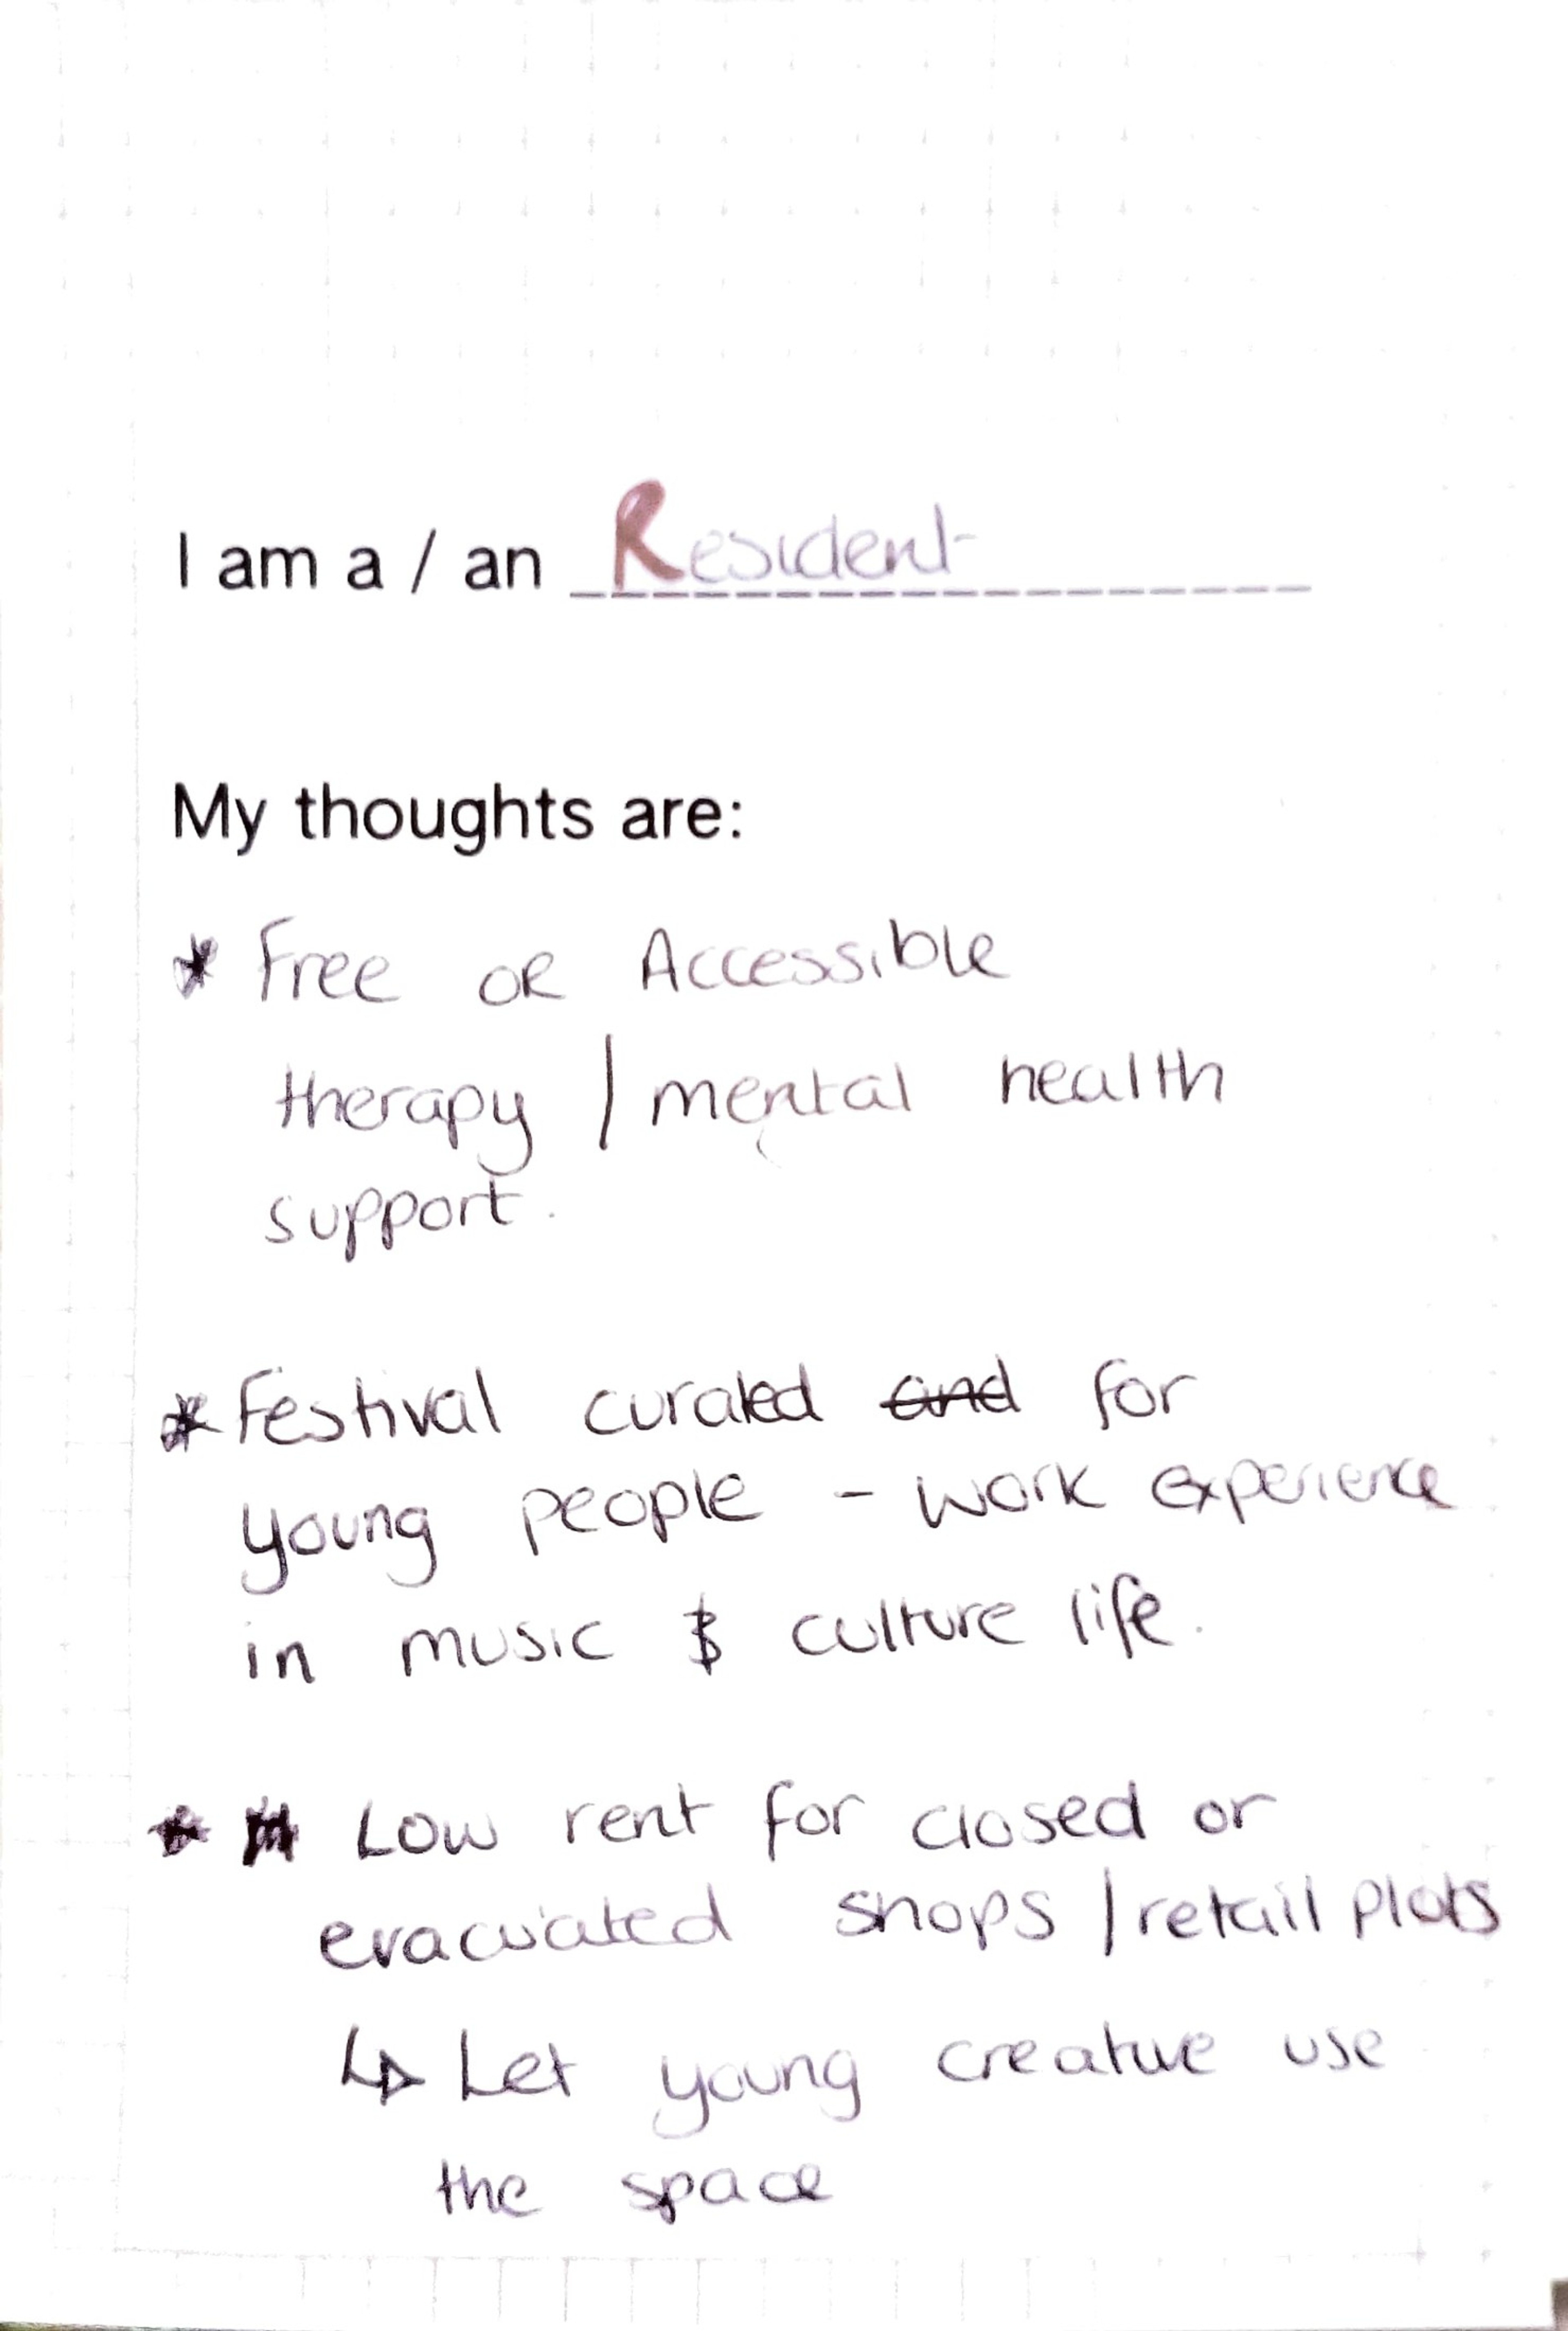 I am a / an Resident
My thoughts are:
* Free or Accessible
therapy / mental health
support.
* Festival curated and for
young people - work experience
in music & culture life.
* Low rent for closed or
evacuated shops / retail plots
↳ Let young creative use
the space